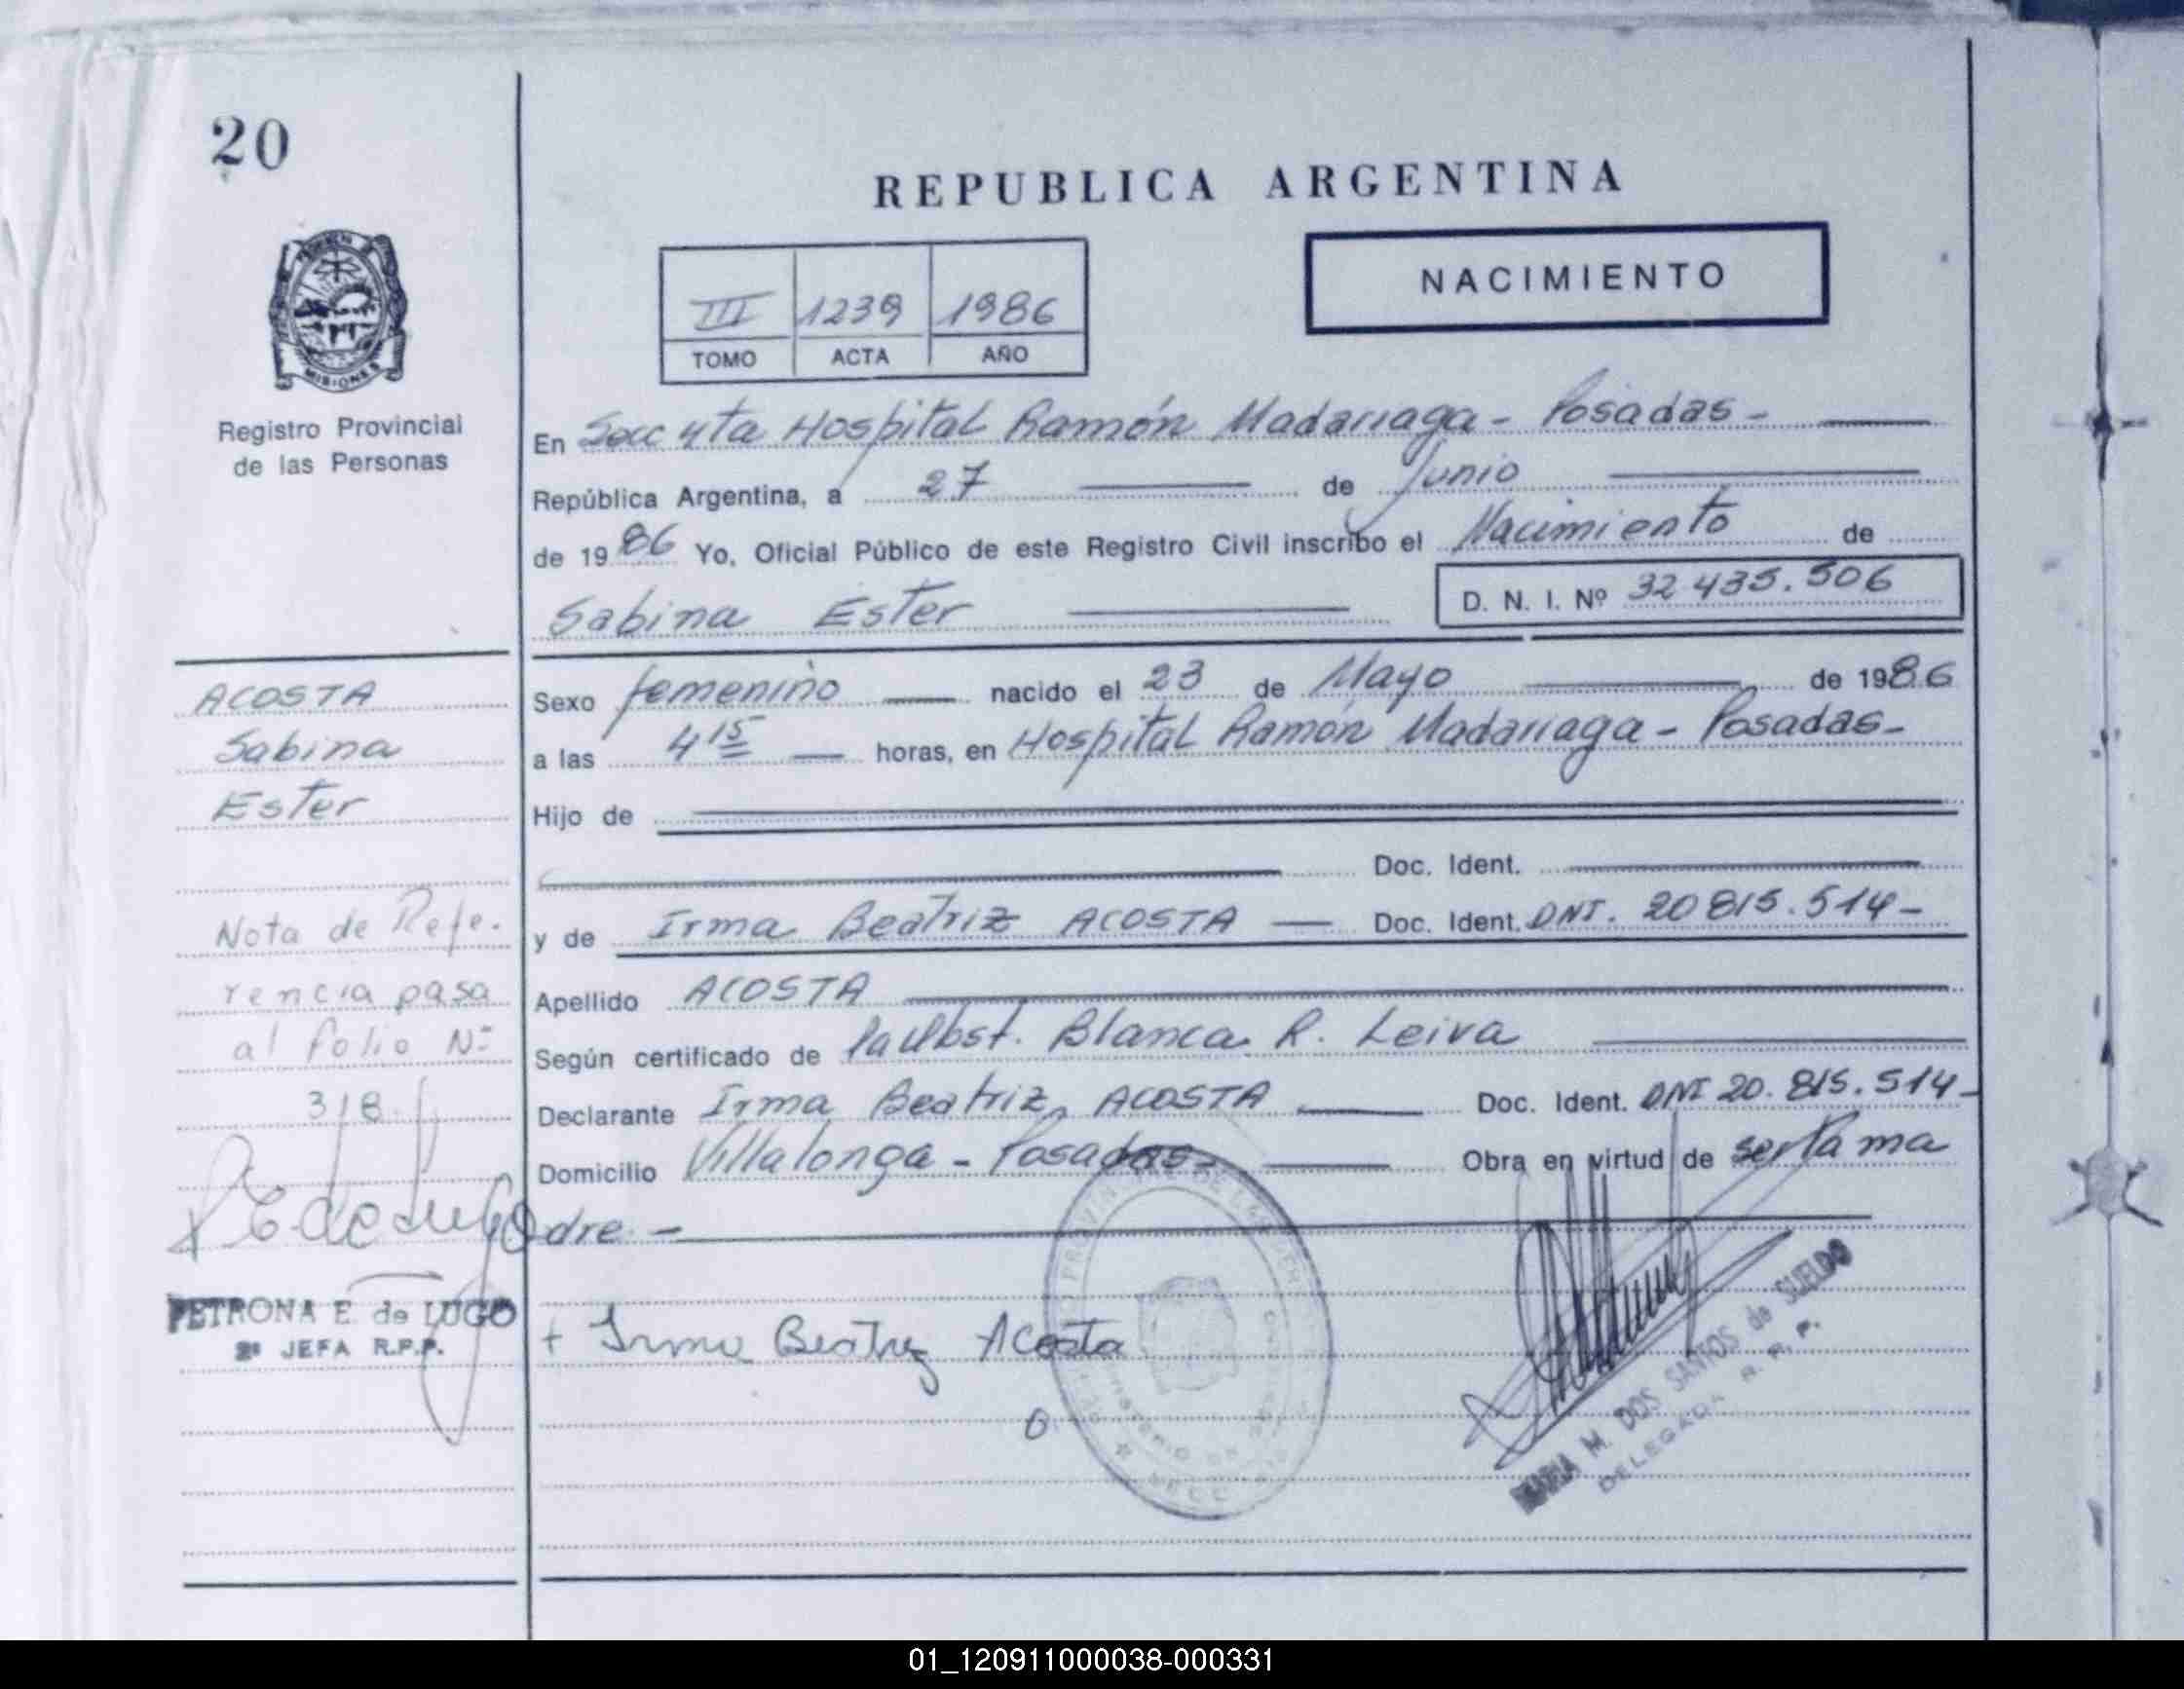 20
REPUBLICA ARGENTINA
NACIMIENTO
III 1239 1986
TOMO ACTA AÑO
MISIONES
Registro Provincial
de las Personas
En Secc 4ta Hospital Ramón Madariaga - Posadas -
República Argentina, a 27 de Junio
de 1986 Yo, Oficial Público de este Registro Civil inscribo el Nacimiento de
Sabina Ester D. N. I. Nº 32 435.506
ACOSTA
Sabina
Ester
Sexo femenino nacido el 23 de Mayo de 1986
a las 4 15 horas, en Hospital Ramón Madariaga - Posadas -
Hijo de
Doc. Ident.
y de Irma Beatriz ACOSTA Doc. Ident. DNI. 20 815.514 -
Apellido ACOSTA
Según certificado de la Obst. Blanca R. Leiva
Declarante Irma Beatriz ACOSTA Doc. Ident. DNI 20.815.514 -
Domicilio Villalonga - Posadas - Obra en virtud de ser la ma
dre. -
Nota de Refe.
rencia pasa
al folio Nº
318
P E. de Lugo
PETRONA E. de LUGO
2ª JEFA R.P.P.
+ Irma Beatriz Acosta
MARIA M. DOS SANTOS de SUELDO
DELEGADA R. P. P.
01_120911000038-000331